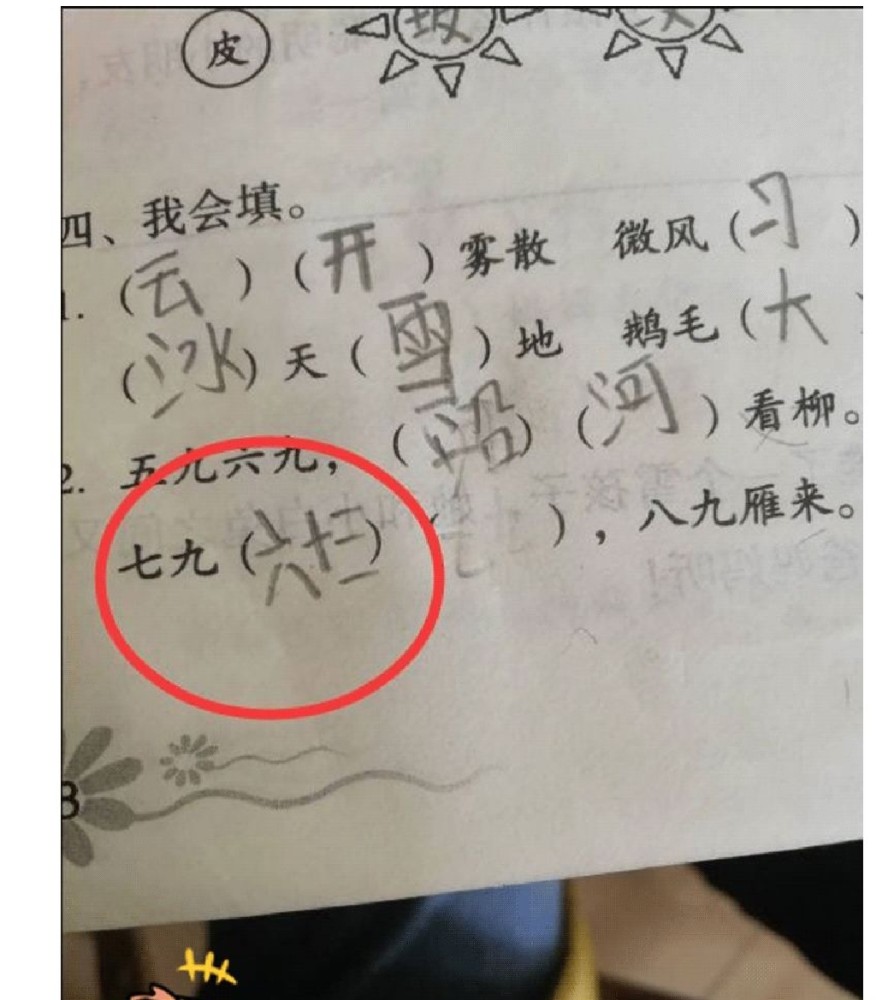 皮
四、我会填。
1. (云) (开) 雾散 微风 (习 )
(冰) 天 (雪) 地 鹅毛 (大
2. 五九六九, (沿) (河) 看柳。
七九 (六十三) ( ), 八九雁来。